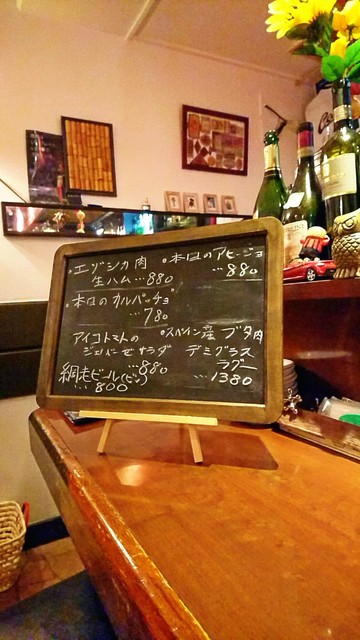 ・エゾシカ肉
生ハム…880
・本日のカルパッチョ
…780
アイコトマトの
ジェノベーゼサラダ
…880
網走ビール(ビン)
…800
・本日のアヒージョ
…880
・スペイン産 ブタ肉
デミグラス
ラグー
…1380